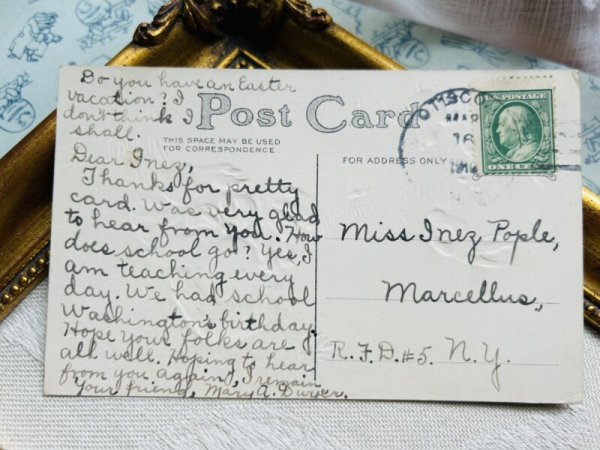 Do you have an Easter
vacation? I
don't think I
shall.
Post Card
THIS SPACE MAY BE USED
FOR CORRESPONDENCE.
FOR ADDRESS ONLY
Dear Inez,
Thanks for pretty
card. Was very glad
to hear from you. How
does school go? Yes, I
am teaching every
day. We had school
Washington's birthday.
Hope your folks are
all well. Hoping to hear
from you again, I remain
Your friend, Mary A.
OTISCO
MAR
16
U.S. POSTAGE
ONE CENT
Miss Inez Pople,
Marcellus,
R.F.D. #5. N.Y.